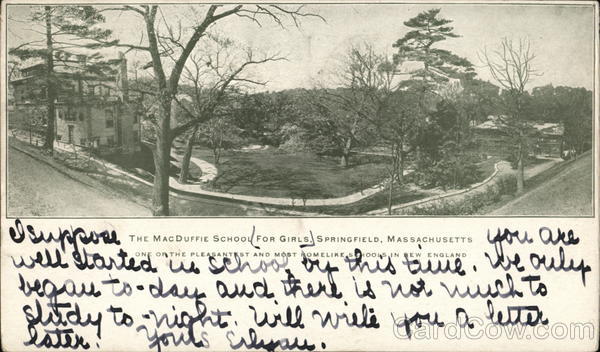 THE MACDUFFIE SCHOOL (FOR GIRLS) SPRINGFIELD, MASSACHUSETTS
ONE OF THE PLEASANTEST AND MOST HOMELIKE SCHOOLS IN NEW ENGLAND
I suppose you are
well started in school by this time. We only
began to-day and there is not much to
study to-night. Will write you a letter
later. Yours
CardCow.com